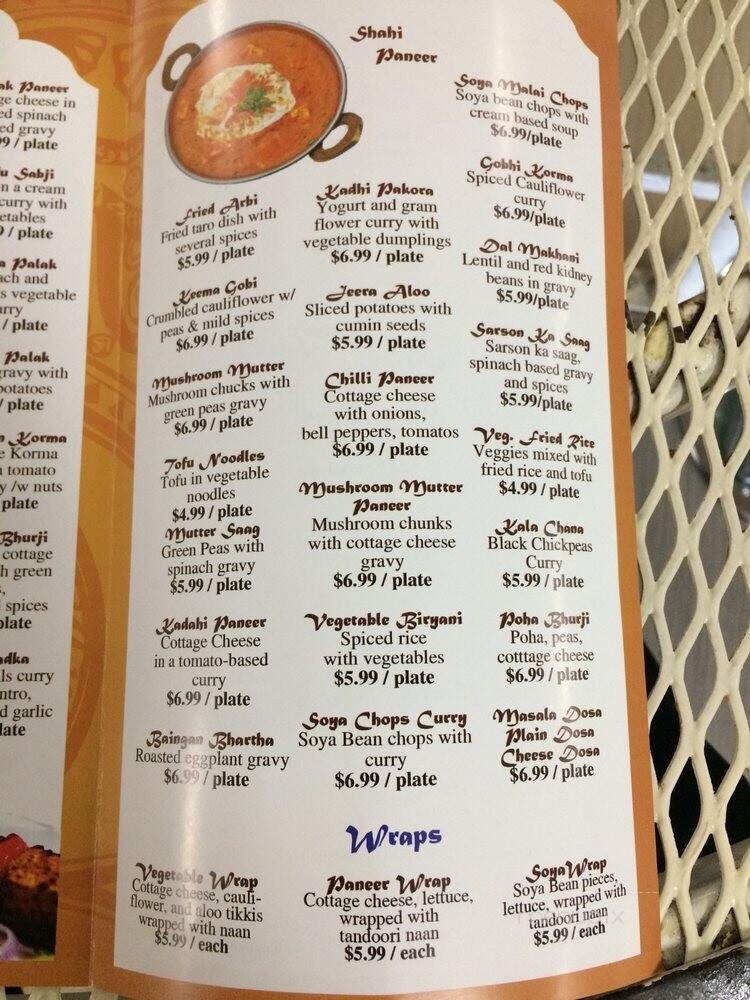 ak Paneer
ge cheese in
ed spinach
ed gravy
99 / plate
u Sabji
n a cream
curry with
etables
9 / plate
a Palak
ach and
s vegetable
urry
/ plate
Palak
ravy with
potatoes
/ plate
n Korma
e Korma
a tomato
y /w nuts
plate
Bhurji
cottage
h green
s,
spices
plate
adka
ls curry
ntro,
d garlic
late
Shahi
Paneer
Fried Arbi
Fried taro dish with
several spices
$5.99 / plate
Keema Gobi
Crumbled cauliflower w/
peas & mild spices
$6.99 / plate
Mushroom Mutter
Mushroom chucks with
green peas gravy
$6.99 / plate
Tofu Noodles
Tofu in vegetable
noodles
$4.99 / plate
Mutter Saag
Green Peas with
spinach gravy
$5.99 / plate
Kadahi Paneer
Cottage Cheese
in a tomato-based
curry
$6.99 / plate
Baingan Bhartha
Roasted eggplant gravy
$6.99 / plate
Kadhi Pakora
Yogurt and gram
flower curry with
vegetable dumplings
$6.99 / plate
Jeera Aloo
Sliced potatoes with
cumin seeds
$5.99 / plate
Chilli Paneer
Cottage cheese
with onions,
bell peppers, tomatos
$6.99 / plate
Mushroom Mutter
Paneer
Mushroom chunks
with cottage cheese
gravy
$6.99 / plate
Vegetable Biryani
Spiced rice
with vegetables
$5.99 / plate
Soya Chops Curry
Soya Bean chops with
curry
$6.99 / plate
Soya Malai Chops
Soya bean chops with
cream based soup
$6.99/plate
Gobhi Korma
Spiced Cauliflower
curry
$6.99/plate
Dal Makhani
Lentil and red kidney
beans in gravy
$5.99/plate
Sarson Ka Saag
Sarson ka saag,
spinach based gravy
and spices
$5.99/plate
Veg. Fried Rice
Veggies mixed with
fried rice and tofu
$4.99 / plate
Kala Chana
Black Chickpeas
Curry
$5.99 / plate
Poha Bhurji
Poha, peas,
cotttage cheese
$6.99 / plate
Masala Dosa
Plain Dosa
Cheese Dosa
$6.99 / plate
Wraps
Vegetable Wrap
Cottage cheese, cauli-
flower, and aloo tikkis
wrapped with naan
$5.99 / each
Paneer Wrap
Cottage cheese, lettuce,
wrapped with
tandoori naan
$5.99 / each
Soya Wrap
Soya Bean pieces,
lettuce, wrapped with
tandoori naan
$5.99 / each